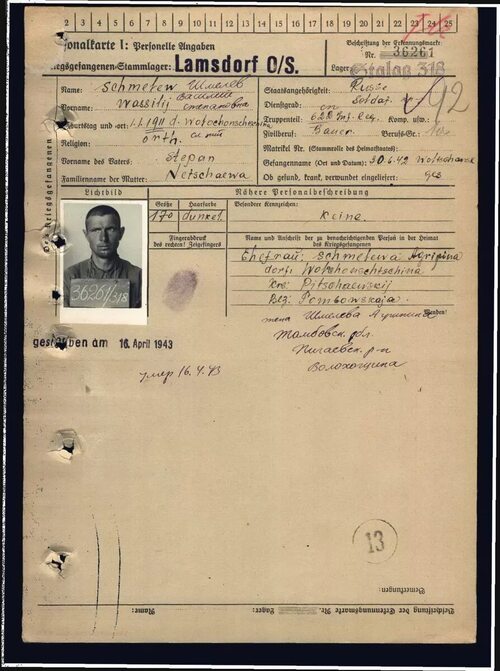 1 2 3 4 5 6 7 8 9 10 11 12 13 14 15 16 17 18 19 20 21 22 23 24 25
Personalkarte I: Personelle Angaben
Kriegsgefangenen-Stammlager: Lamsdorf O/S.
Beschriftung der Erkennungsmarke
Nr. 36261
Lager: Stalag 318
92
Name: Schmelew Шмелев
Vorname: Wassilij Василий
Geburtstag und -ort: 1.1.1911 d.
Religion: orth.
Vorname des Vaters: Stepan
Familienname der Mutter: Netschaewa
Staatsangehörigkeit: Russe
Dienstgrad: Soldat
Truppenteil: 622 Inf. Reg. Komp. usw.:
Zivilberuf: Bauer Berufs-Gr.:
Matrikel Nr. (Stammrolle des Heimatstaates):
Gefangennahme (Ort und Datum): 30.6.42
Ob gesund, krank, verwundet eingeliefert: ges
Lichtbild
Nähere Personalbeschreibung
Größe Haarfarbe Besondere Kennzeichen:
170 dunkel. Keine.
Fingerabdruck
des rechten! Zeigefingers
Name und Anschrift der zu benachrichtigenden Person in der Heimat
des Kriegsgefangenen
Ehefrau: Schmelewa Agripina
dorf:
Krs:
Bez:
36261/318
жена Шмелева
Тамбовск. обл.
р-н
gestorben am 16. April 1943
умер 16.4.43
13
Bemerkungen:
Beschriftung der Erkennungsmarke Nr. Lager: Name: